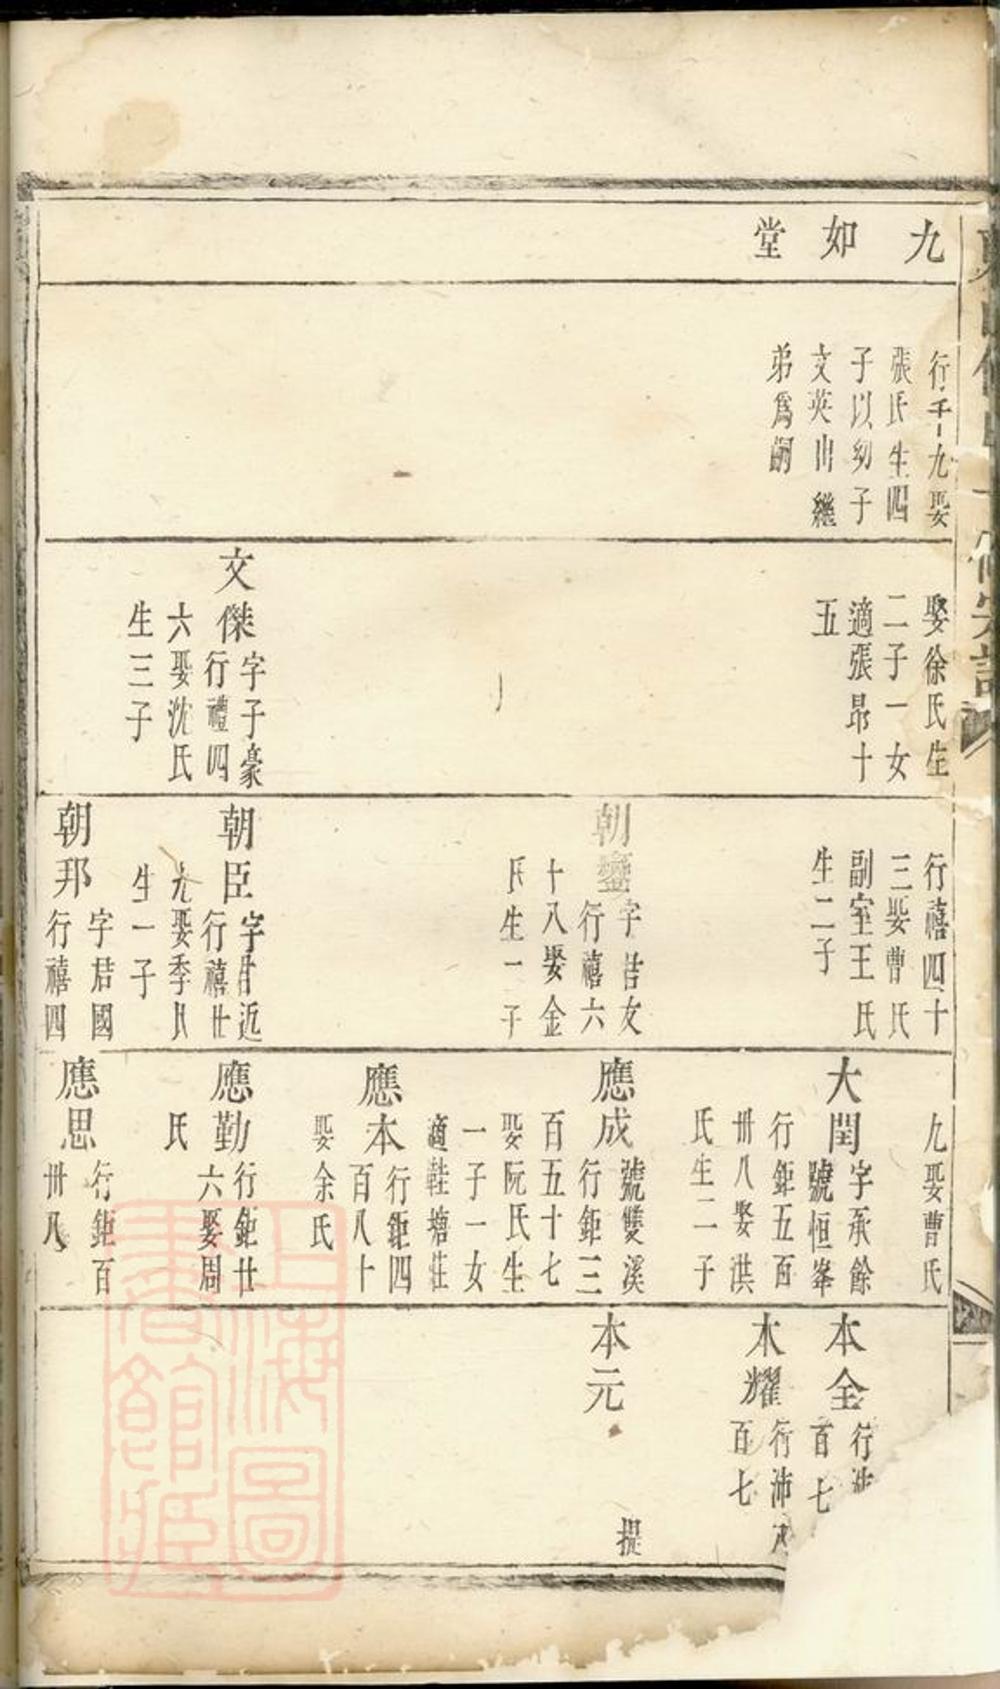 九如堂
行千一九娶
張氏生四
子以幼子
文英出繼
弟爲嗣
娶徐氏生
二子一女
適張昂十
五
文傑
字子豪
行禮四
六娶沈氏
生三子
行禧四十
三娶曹氏
副室王氏
生二子
朝鑾
字
行禧六
十八娶金
氏生一子
朝臣
字廿近
行禧廿
九娶季氏
生一子
朝邦
字喆國
行禧四
九娶曹氏
大閏
字承餘
號恒峯
行鉅五百
卅八娶洪
氏生二子
應成
號雙溪
行鉅三
百五十七
娶阮氏生
一子一女
適鞋塘莊
應本
行鉅四
百八十
娶余氏
應勤
行鉅廿
六娶周
氏
應思
行鉅百
卅八
本全
行沛
百七
本耀
行沛
百七
本元
提
上海圖書館藏